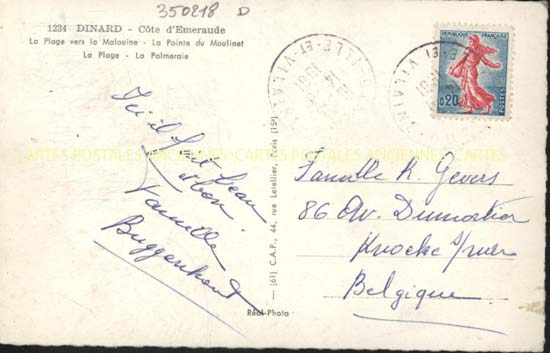 350218 D
1234 DINARD - Côte d'Emeraude
La Plage vers la Malouine - La Pointe du Moulinet
La Plage - La Palmeraie
REPUBLIQUE FRANÇAISE
0,20
POSTES
ILLE-ET-VILAINE
CARTES POSTALES ANCIENNES CARTES
Ici il fait beau
et bon
Famille
Buggenhout
(61) C.A.P., 44, rue Letellier, Paris (15e)
Réal-Photo
Famille R. Gevers
86 Av. Dumortier
Knocke s/mer
Belgique